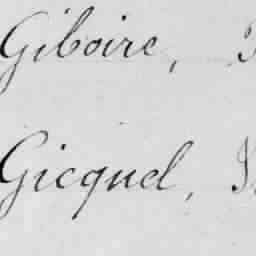 Giboire,
Gicquel,